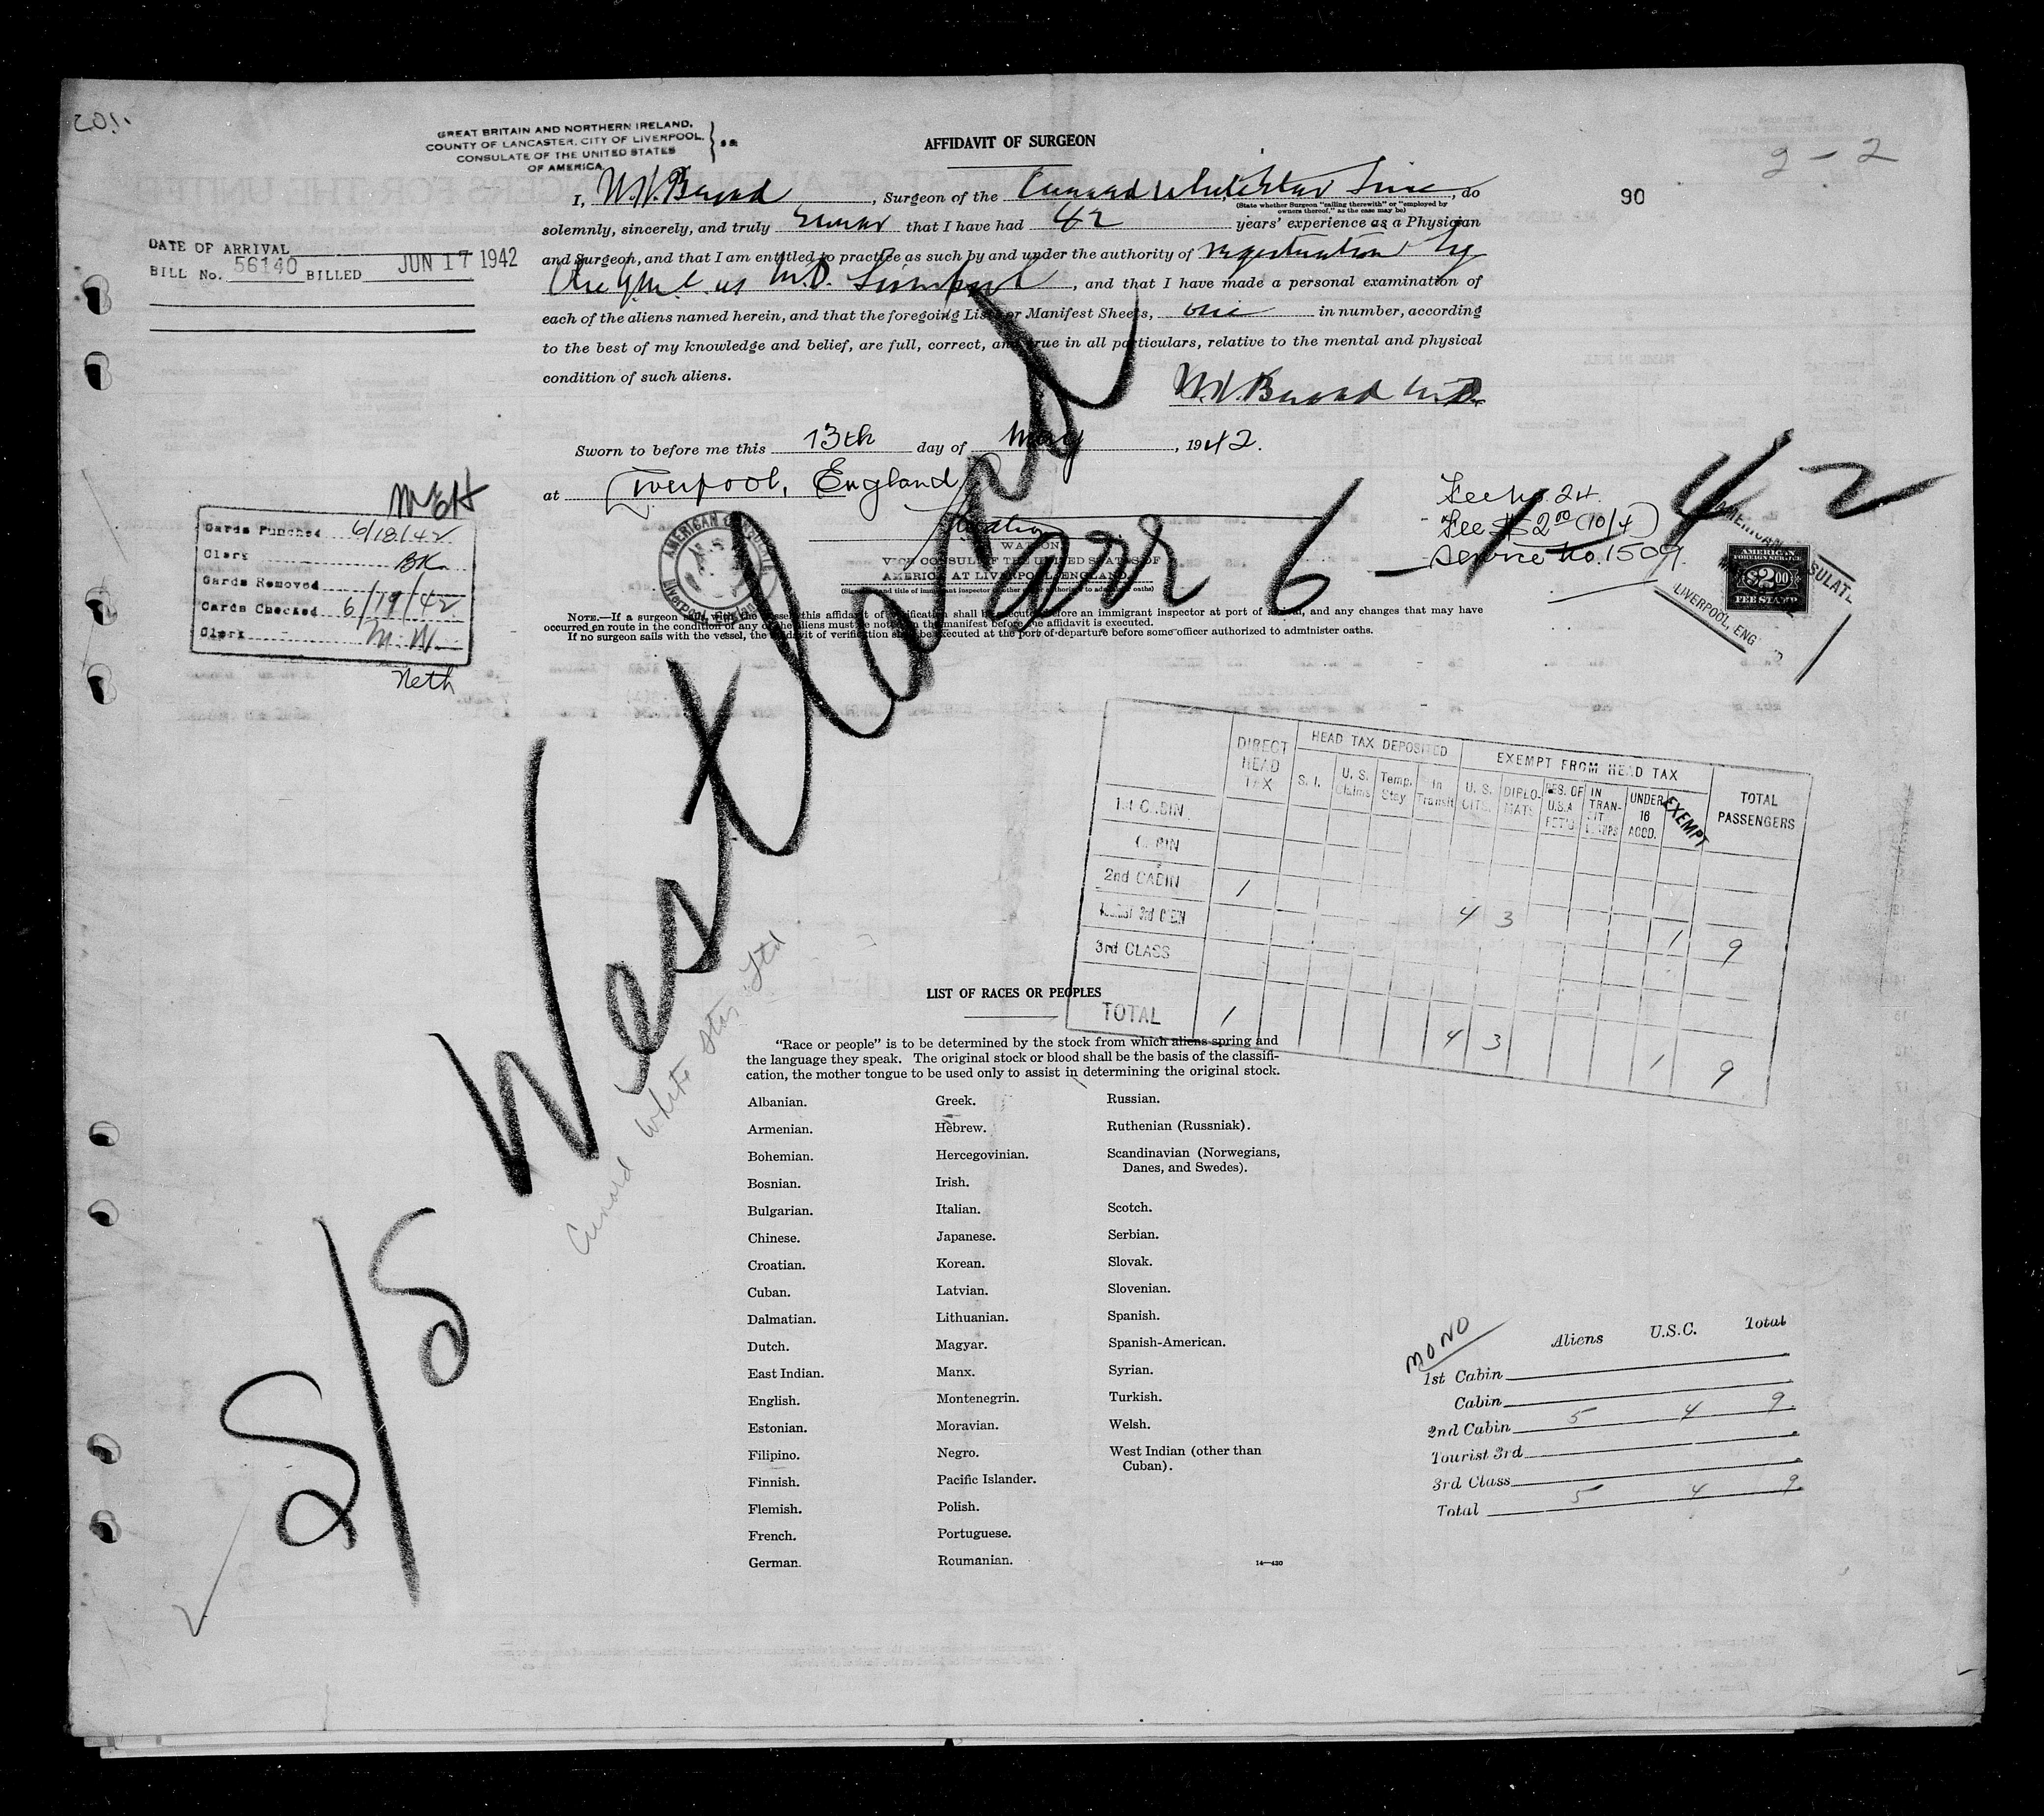 2 - 2
90
GREAT BRITAIN AND NORTHERN IRELAND,
COUNTY OF LANCASTER, CITY OF LIVERPOOL,
CONSULATE OF THE UNITED STATES
OF AMERICA
} ss
AFFIDAVIT OF SURGEON
I, , Surgeon of the Cunard White Star Line, do
(State whether Surgeon "sailing therewith" or "employed by
owners thereof," as the case may be)
solemnly, sincerely, and truly swear that I have had 42 years' experience as a Physician
and Surgeon, and that I am entitled to practice as such by and under the authority of registration by
the G.M.C. as M.D. , and that I have made a personal examination of
each of the aliens named herein, and that the foregoing Lists or Manifest Sheets, one in number, according
to the best of my knowledge and belief, are full, correct, and true in all particulars, relative to the mental and physical
condition of such aliens.
DATE OF ARRIVAL
BILL No. 56140 BILLED JUN 17 1942
Sworn to before me this 13th day of May, 1942.
at Liverpool, England
WATSON
VICE CONSUL OF THE UNITED STATES OF
AMERICA AT LIVERPOOL, ENGLAND
AMERICAN CONSULATE
Liverpool, England
Fee No. 24.
Fee $2.00 (10/4)
Service No. 1509.
AMERICAN CONSULATE
LIVERPOOL, ENG
AMERICAN
FOREIGN SERVICE
$2.00
FEE STAMP
NOTE.—If a surgeon sails with the vessel, this affidavit of verification shall be executed before an immigrant inspector at port of arrival, and any changes that may have
occurred en route in the condition of any of the aliens must be noted on the manifest before the affidavit is executed.
If no surgeon sails with the vessel, the affidavit of verification shall be executed at the port of departure before some officer authorized to administer oaths.
MEH
Cards Punched 6/18/42
Clerk BK
Cards Removed
Cards Checked 6/19/42
Clerk M.W.
Neth
S/S West 6-1-42
Cunard White Star Ltd
DIRECT HEAD TAX
HEAD TAX DEPOSITED
EXEMPT FROM HEAD TAX
TOTAL PASSENGERS
S. I.
U. S. Claims
Temp. Stay
In Transit
U. S. CITS.
DIPLO-MATS
RES. OF U.S.A RET'G
IN TRAN-SIT
UNDER 16 ACCD.
EXEMPT
1st CABIN
CABIN
2nd CABIN 1 4 3 1 9
TOURIST 3rd CABIN
3rd CLASS
TOTAL 1 4 3 1 9
LIST OF RACES OR PEOPLES
"Race or people" is to be determined by the stock from which aliens spring and
the language they speak. The original stock or blood shall be the basis of the classifi-
cation, the mother tongue to be used only to assist in determining the original stock.
Albanian.
Armenian.
Bohemian.
Bosnian.
Bulgarian.
Chinese.
Croatian.
Cuban.
Dalmatian.
Dutch.
East Indian.
English.
Estonian.
Filipino.
Finnish.
Flemish.
French.
German.
Greek.
Hebrew.
Hercegovinian.
Irish.
Italian.
Japanese.
Korean.
Latvian.
Lithuanian.
Magyar.
Manx.
Montenegrin.
Moravian.
Negro.
Pacific Islander.
Polish.
Portuguese.
Roumanian.
Russian.
Ruthenian (Russniak).
Scandinavian (Norwegians,
Danes, and Swedes).
Scotch.
Serbian.
Slovak.
Slovenian.
Spanish.
Spanish-American.
Syrian.
Turkish.
Welsh.
West Indian (other than
Cuban).
14—430
MONO
Aliens U.S.C. Total
1st Cabin
Cabin
2nd Cabin 5 4 9
Tourist 3rd
3rd Class
Total 5 4 9